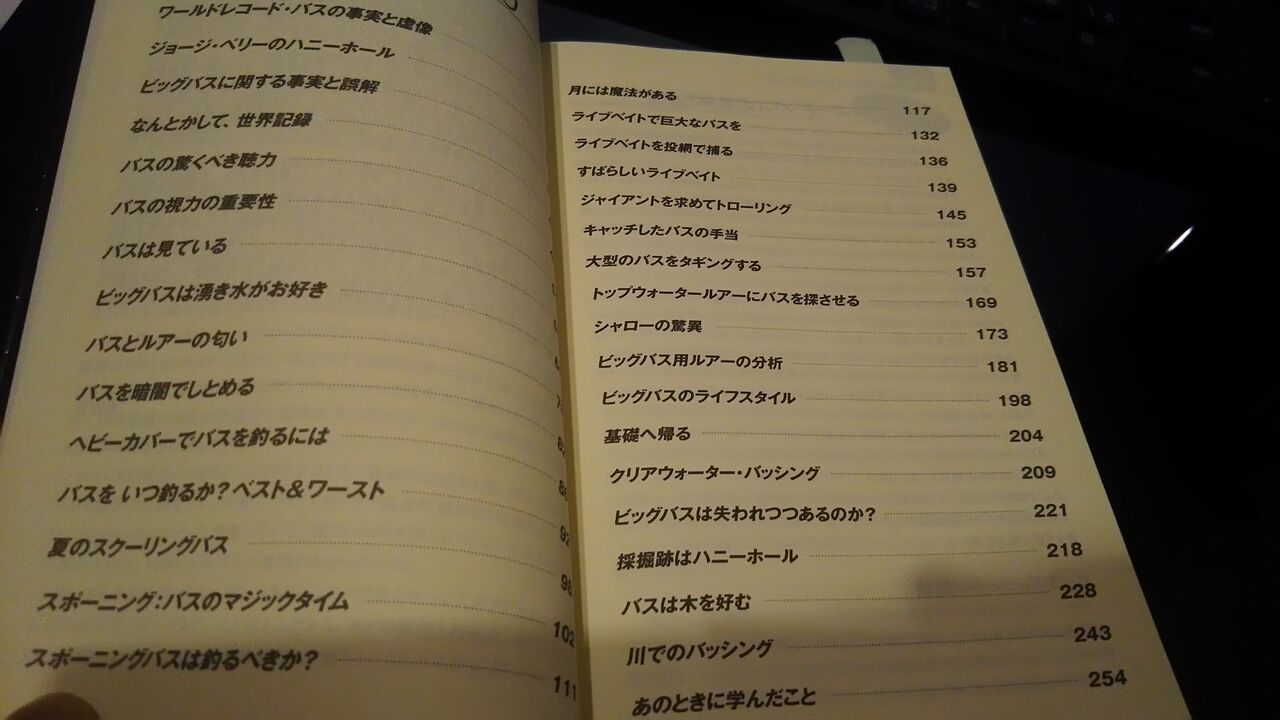 ワールドレコード・バスの事実と虚像
ジョージ・ペリーのハニーホール
ビッグバスに関する事実と誤解
なんとかして、世界記録
バスの驚くべき聴力
バスの視力の重要性
バスは見ている
ビッグバスは湧き水がお好き
バスとルアーの匂い
バスを暗闇でしとめる
ヘビーカバーでバスを釣るには
バスを いつ釣るか？ベスト＆ワースト 92
夏のスクーリングバス 98
スポーニング：バスのマジックタイム 102
スポーニングバスは釣るべきか？ 111
月には魔法がある 117
ライブベイトで巨大なバスを 132
ライブベイトを投網で捕る 136
すばらしいライブベイト 139
ジャイアントを求めてトローリング 145
キャッチしたバスの手当 153
大型のバスをタギングする 157
トップウォータールアーにバスを探させる 169
シャローの驚異 173
ビッグバス用ルアーの分析 181
ビッグバスのライフスタイル 198
基礎へ帰る 204
クリアウォーター・バッシング 209
ビッグバスは失われつつあるのか？ 221
採掘跡はハニーホール 218
バスは木を好む 228
川でのバッシング 243
あのときに学んだこと 254